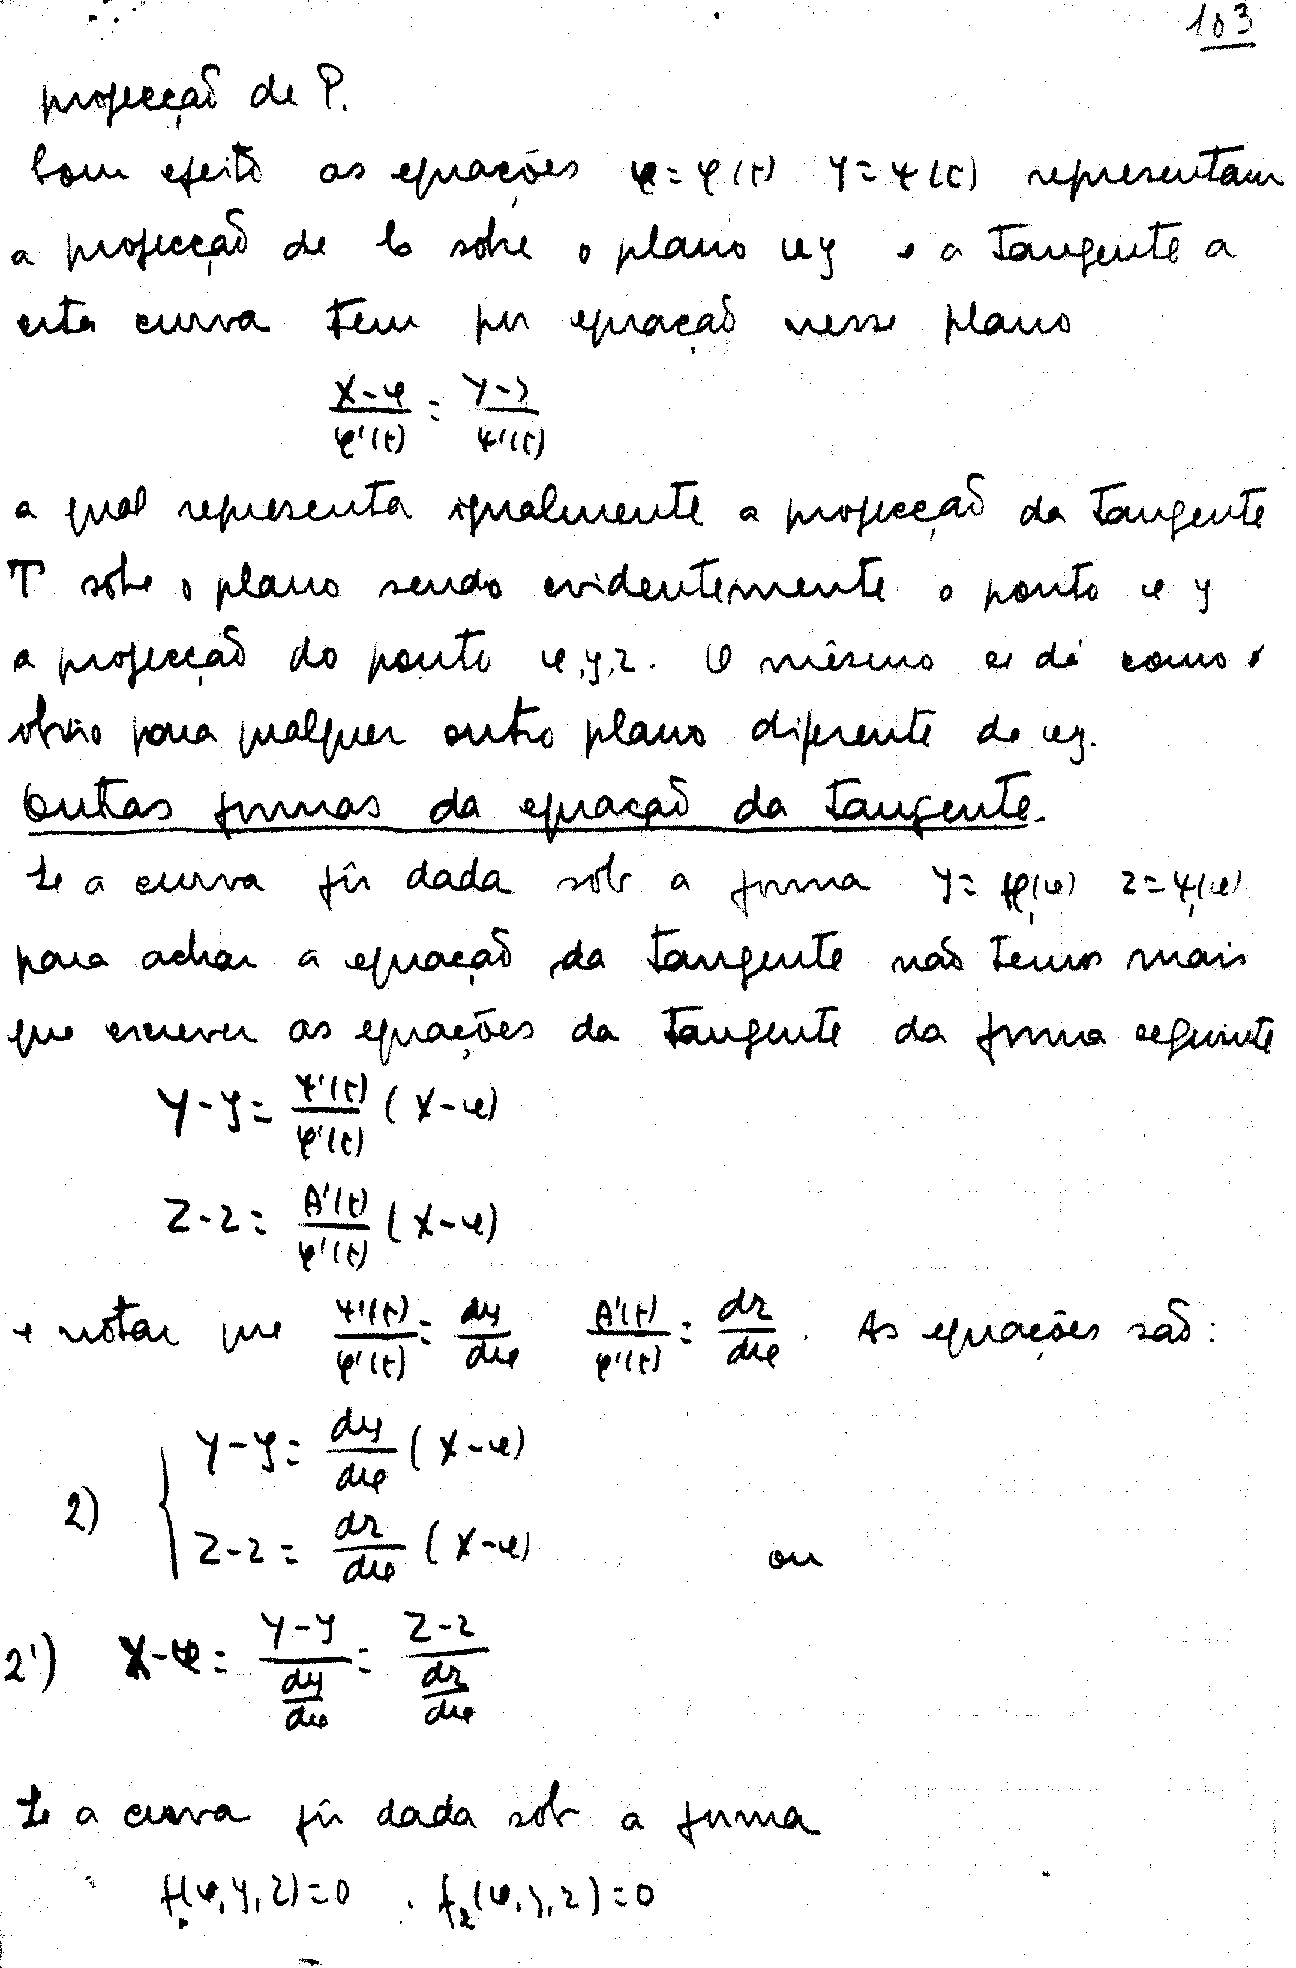 103
projecção de P.
Com efeito as equações x = φ(t) y = ψ(t) representam
a projecção de C sobre o plano xy e a tangente a
esta curva tem por equação nesse plano
(X-x)/φ'(t) = (Y-y)/ψ'(t)
a qual representa igualmente a projecção da tangente
T sobre o plano sendo evidentemente o ponto x y
a projecção do ponto x,y,z. O mêsmo se dá como é
obvio para qualquer outro plano diferente de xy.
Outras formas da equação da tangente.
Se a curva fôr dada sob a forma y = φ₁(x) z = ψ₁(x)
para achar a equação da tangente não temos mais
que escrever as equações da tangente da forma seguinte
Y-y = ψ'(t)/φ'(t) (X-x)
Z-z = θ'(t)/φ'(t) (X-x)
e notar que ψ'(t)/φ'(t) = dy/dx θ'(t)/φ'(t) = dz/dx . As equações são:
2) { Y-y = dy/dx (X-x)
Z-z = dz/dx (X-x) ou
2') X-x = (Y-y)/(dy/dx) = (Z-z)/(dz/dx)
Se a curva fôr dada sob a forma
f₁(x,y,z)=0 . f₂(x,y,z)=0